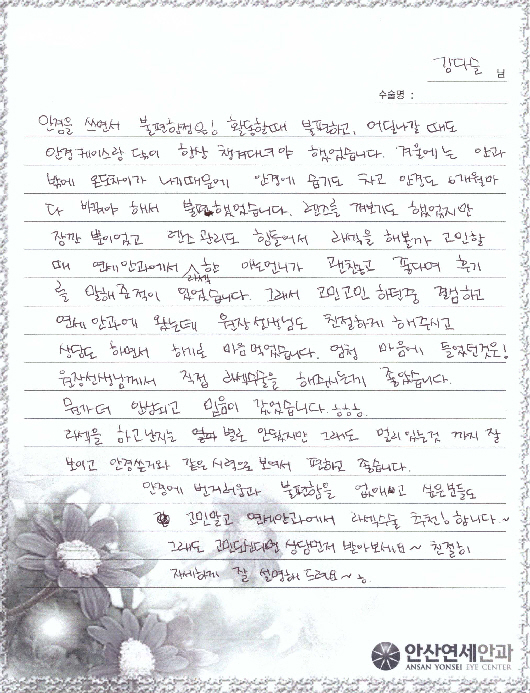 강다슬 님
수술명 :
안경을 쓰면서 불편한점은! 활동할때 불편하고, 어딜나갈 때도
안경케이스랑 닦이 항상 챙겨다녀야 했었습니다. 겨울에는 안과
밖에 온도차이가 나기때문에 안경에 습기도 차고 안경도 6개월마
다 바꿔야 해서 불편했었습니다. 렌즈를 껴보기도 했었지만
잠깐 뿐이었고 렌즈 관리도 힘들어서 라섹을 해볼까 고민할
때 연세안과에서 라섹 한 아는언니가 괜찮고 좋다며 후기
를 말해준적이 있었습니다. 그래서 고민고민 하던중 결심하고
연세안과에 왔는데 원장선생님도 친절하게 해주시고
상담도 하면서 하기로 마음먹었습니다. 엄청 마음에 들었던것은!
원장선생님께서 직접 라섹수술을 해주시는게 좋았습니다.
뭔가 더 안심되고 믿음이 갔었습니다. ㅎㅎㅎ.
라섹을 하고난지는 얼마 별로 안됐지만 그래도 멀리있는것 까지 잘
보이고 안경쓴거와 같은 시력으로 보여서 편하고 좋습니다.
안경에 번거러움과 불편함을 없애고 싶은분들도
고민말고 연세안과에서 라섹수술 추천! 합니다.~
그래도 고민되신다면 상담먼저 받아보세요~ 친절히
자세하게 잘 설명해 드려요~ ㅎ.
안산연세안과
ANSAN YONSEI EYE CENTER